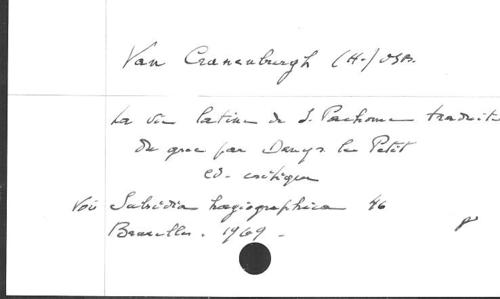 Van Cranenburgh (H.) OSB.
La vie latine de S. Pachome traduite
du grec par Denys le Petit
ed. critique
Voir Subsidia hagiographica 46
Bruxelles. 1969.